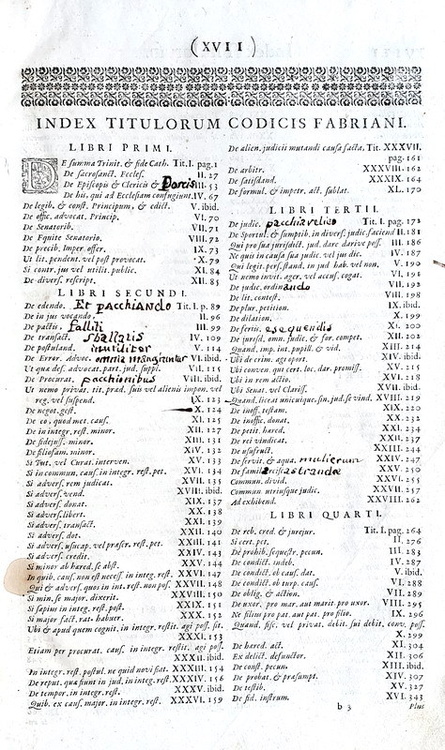 (XVII)
INDEX TITULORUM CODICIS FABRIANI.
LIBRI PRIMI.
DE summa Trinit. & fide Cath. Tit. I. pag. 1
De sacrosanct. Eccles. II. 27
De Episcopis & Clericis & Porcis III. 53
De his, qui ad Ecclesiam confugiunt. IV. 67
De legib. & const. Principum, & edict. V. ibid.
De offic. advocat. Princip. VI. 70
De Senatorib. VII. 71
De Equite Senatorio. VIII. 72
De precib. Imper. offer. IX. 73
Ut lit. pendent. vel post provocat. X. 79
Si contr. jus vel utilit. public. XI. 84
De divers. rescript. XII. 85
LIBRI SECUNDI.
De edendo. Et pacchiando Tit. I. p. 89
De in jus vocando. II. 96
De pactis. Falliti III. 99
De transact. sballatis IV. 109
De postuland. V. 114
De Error. Advoc. VI. ibid.
Ut quæ des. advocat. part. jud. suppl. VII. 115
De Procurat. pacchionibus VIII. ibid.
Ut nemo privat. tit. præd. suis vel alienis impon. vel
reg. vel suspend. IX. 123
De negot. gest. X. 124
De eo, quod met. caus. XI. 125
De in integr. rest. minor. XII. 127
De fidejuss. minor. XIII. 131
Si filiofam. minor. XIV. 132
Si Tut. vel Curat. interven. XV. 133
Si in commun. caus. in integr. rest. pet. XVI. 134
Si advers. rem judicat. XVII. 135
Si advers. vend. XVIII. ibid.
Si advers. donat. XIX. 137
Si advers. libert. XX. 138
Si advers. transact. XXI. 139
Si advers. dot. XXII. 140
Si advers. usucap. vel præscr. rest. pet. XXIII. 141
Si advers. credit. XXIV. 143
Si minor ab hæred. se abst. XXV. 144
In quib. caus. non est necess. in integ. rest. XXVI. 147
Qui & advers. quos in int. rest. non poss. XXVII. 148
Si min. se major. dixerit. XXVIII. 150
Si sæpius in integ. rest. post. XXIX. 151
Si major fact. rat. habuer. XXX. 152
Ubi & apud quem cognit. in integr. restit. agi poss. sit.
XXXI. 153
Etiam per procurat. caus. in integr. restit. agi poss.
XXXII. ibid.
In integr. rest. postul. ne quid novi fiat. XXXIII. 154
De reput. quæ fiunt in jud. in integ. rest. XXXIV. 156
De tempor. in integr. rest. XXXV. ibid.
Quib. ex caus. major. in integr. rest. XXXVI. 159
De alien. judicii mutandi causa facta. Tit. XXXVII.
pag. 161
De arbitr. XXXVIII. 162
De satisdand. XXXIX. 164
De formul. & impetr. act. sublat. XL. 170
LIBRI TERTII.
De judic. Tit. I. pag. 172
De Sportul. & sumptib. in divers. judic. faciend. II. 181
Qui pro sua jurisdict. jud. dare darive poss. III. 186
Ne quis in causa sua judic. vel jus dic. IV. 187
Qui legit. pers. stand. in jud. hab. vel non. V. 190
Ut nemo invit. ager. vel accus. cogat. VI. 191
De judic. ordinando VII. 192
De lit. contest. VIII. 198
De plus petition. IX. ibid.
De dilation. X. 199
De feriis. asequendis XI. 200
De jurisd. omn. judic. & for. compet. XII. 202
Quand. imp. int. pupill. & vid. XIII. 214
Ubi de crim. agi oport. XIV. ibid.
Ubi conven. qui cert. loc. dar. promis. XV. 215
Ubi in rem actio. XVI. 218
Ubi Senat. vel Clariss. XVII. ibid.
Quand. liceat unicuique, sin. jud. se vind. XVIII. 219
De inoff. testam. XIX. 220
De inoffic. donat. XX. 232
De petit. hæred. XXI. 234
De rei vindicat. XXII. 237
De usufruct. XXIII. 244
De servit. & aqua. mulierum XXIV. 247
De famil. XXV. 250
Commun. divid. XXVI. 255
Commun. utriusque judic. XXVII. 257
Ad exhibend. XXVIII. 262
LIBRI QUARTI.
De reb. cred. & jurejur. Tit. I. pag. 264
Si cert. pet. II. 276
De prohib. sequestr. pecun. III. 283
De condict. indeb. IV. 287
De condict. ob caus. dat. V. ibid.
De condict. ob turp. caus. VI. 288
De oblig. & action. VII. 289
De uxor. pro mar. aut marit. pro uxor. VIII. 295
Ne filius pro pat. aut pat. pro filio. IX. 296
Quand. fisc. vel privat. debit. sui debit. conv. poss.
X. 299
De hæred. act. XI. 304
Ex delict. defunctor. XII. 306
De const. pecun. XIII. ibid.
De probat. & præsumpt. XIV. 307
De testib. XV. 327
De fid. instrum. XVI. 343
b 3 Plus